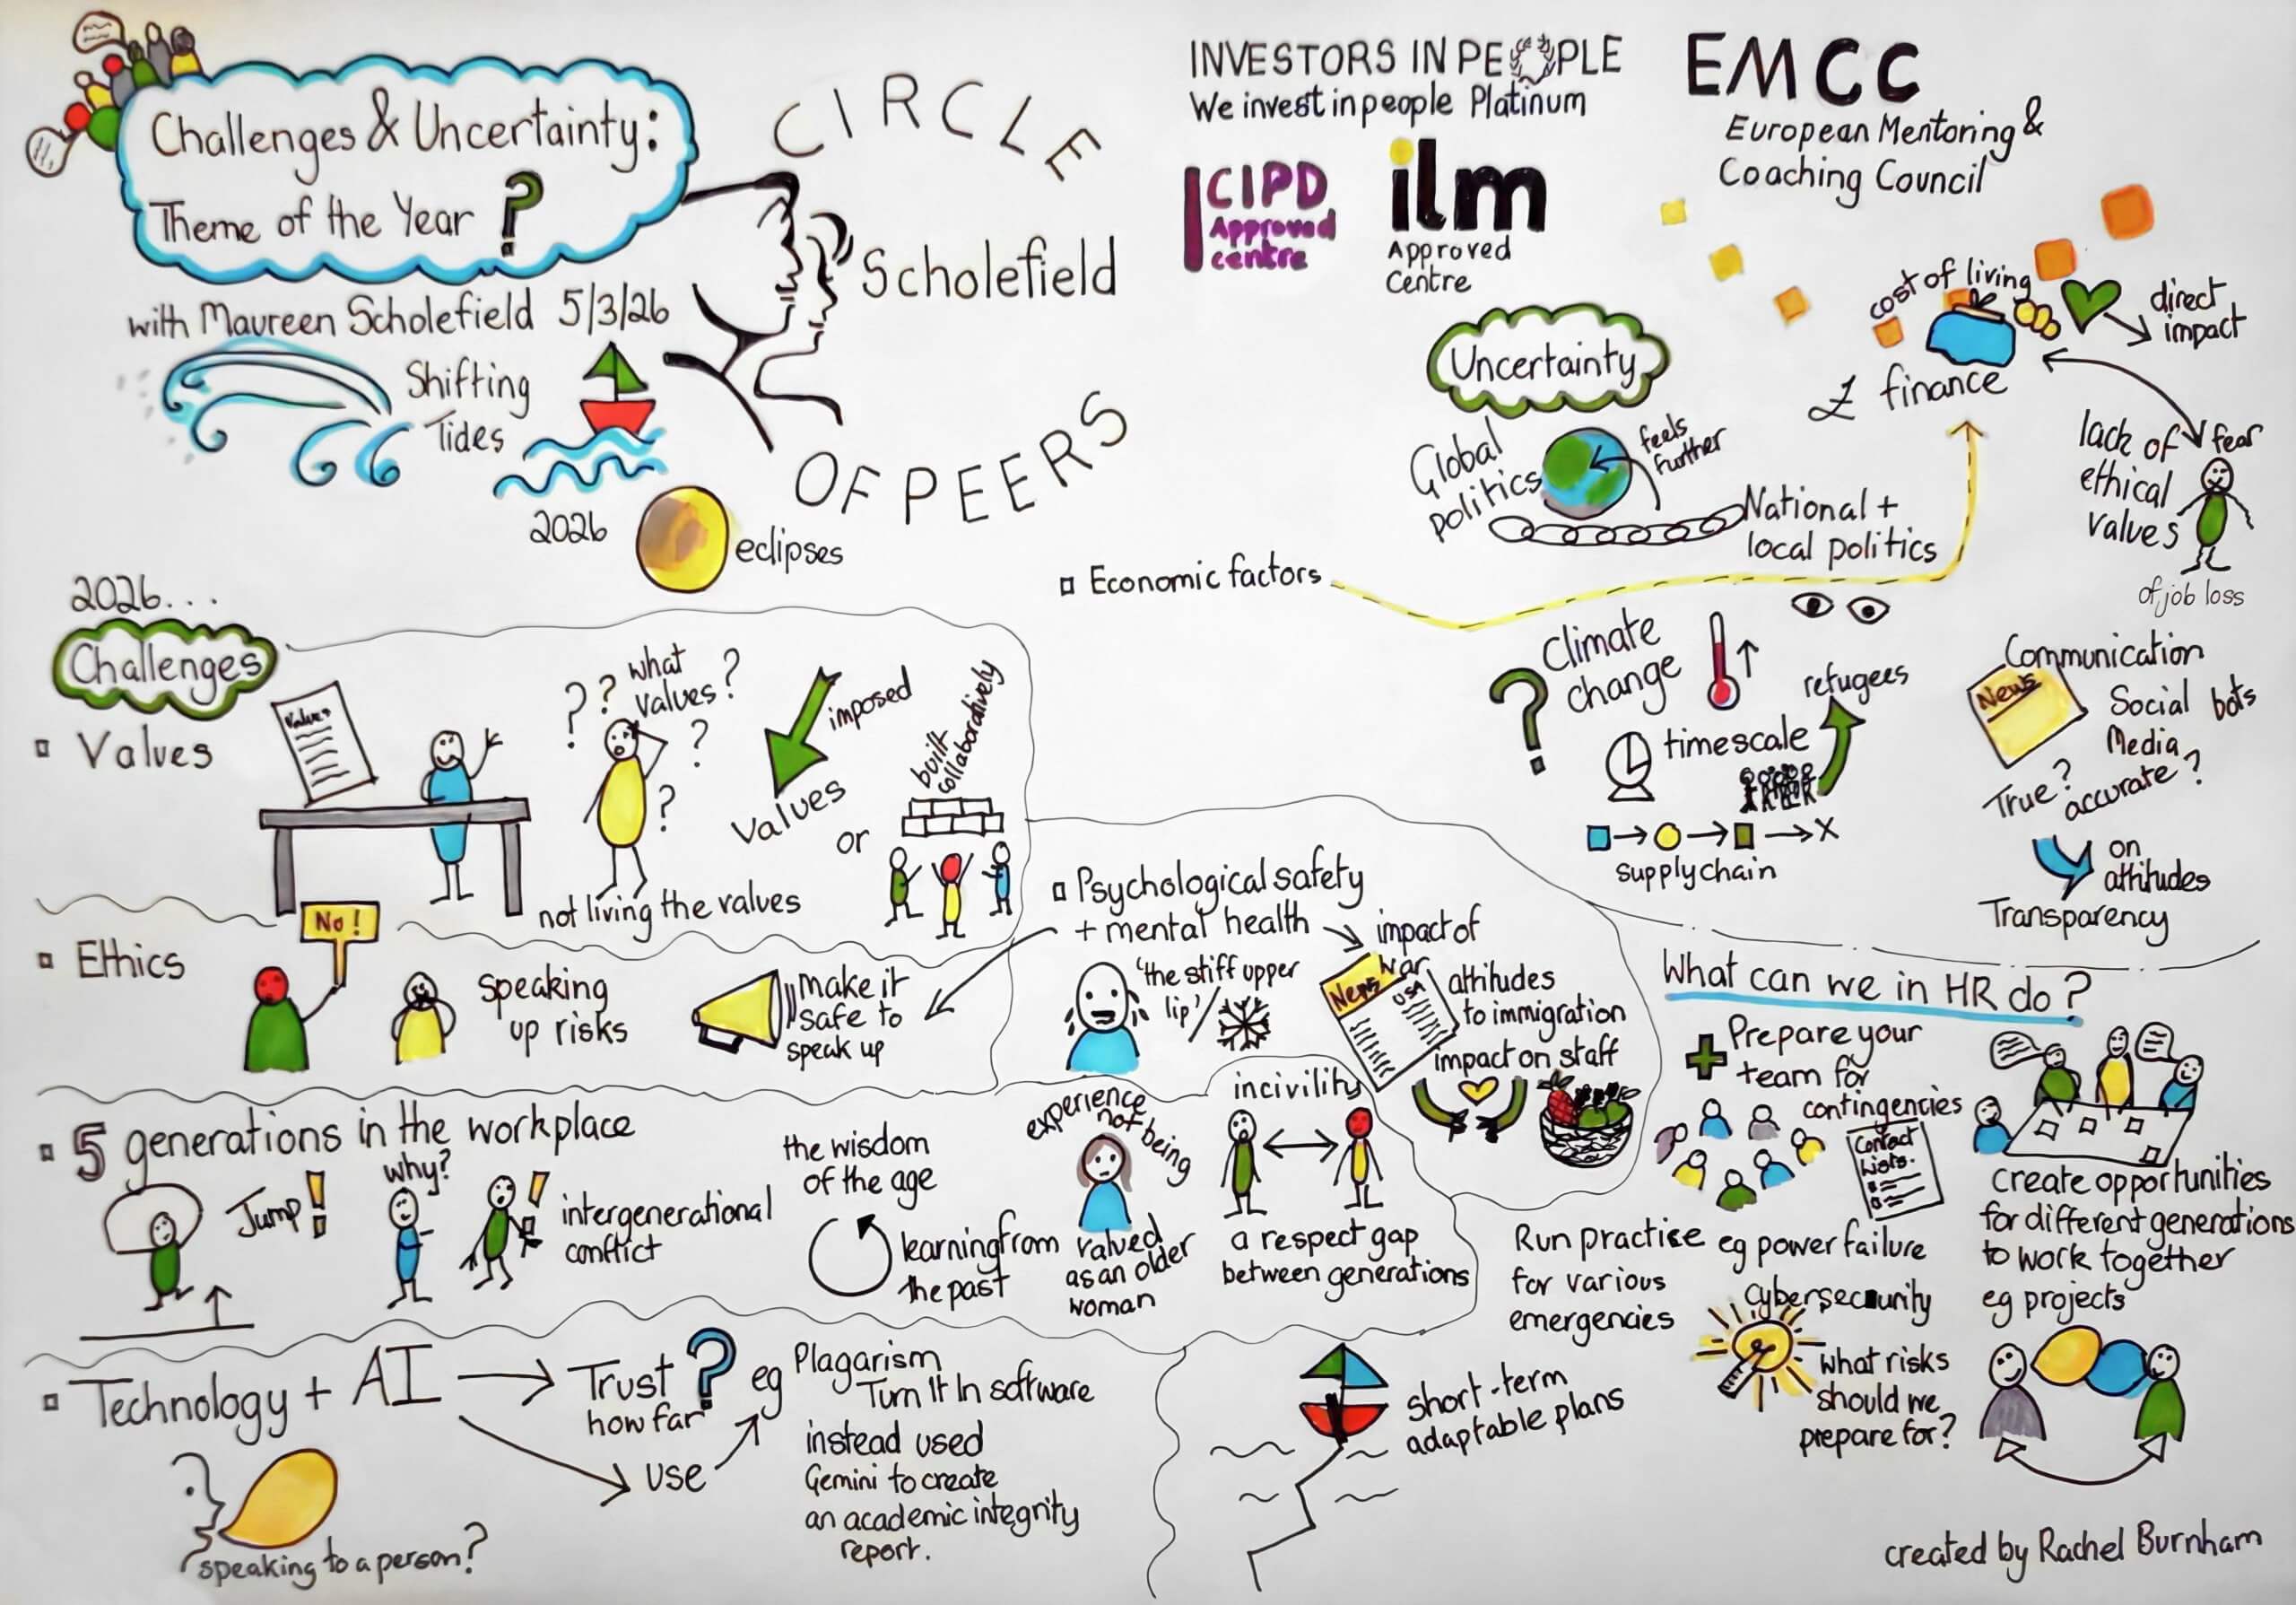 Challenges & Uncertainty:
Theme of the Year ?
with Maureen Scholefield 5/3/26
Shifting
Tides
2026
eclipses
CIRCLE
Scholefield
OF PEERS
INVESTORS IN PEOPLE
We invest in people Platinum
CIPD
Approved
centre
ilm
Approved
Centre
EMCC
European Mentoring &
Coaching Council
Uncertainty
Global
politics
feels
further
National +
local politics
Economic factors
cost of living
£ finance
direct
impact
lack of
ethical
values
fear
of job loss
?
Climate
change
timescale
refugees
supply chain
X
Communication
News
Social bots
Media
True? accurate?
on
attitudes
Transparency
2026...
Challenges
Values
Values
? ? what
values?
?
?
not living the values
imposed
values
or
built
collaboratively
Ethics
No!
speaking
up risks
make it
safe to
speak up
Psychological safety
+ mental health
'the stiff upper
lip'
impact of
war
News
USA
attitudes
to immigration
impact on staff
5 generations in the workplace
Jump!
why?
!
intergenerational
conflict
the wisdom
of the age
learning from
the past
experience
not being
valued
as an older
woman
incivility
a respect gap
between generations
Technology + AI
Trust ?
how far
use
speaking to a person?
eg Plagarism
Turn It In software
instead used
Gemini to create
an academic integrity
report.
short-term
adaptable plans
What can we in HR do?
+ Prepare your
team for
contingencies
Contact
Lists.
Run practise
for various
emergencies
eg power failure
cybersecurity
what risks
should we
prepare for?
create opportunities
for different generations
to work together
eg projects
created by Rachel Burnham